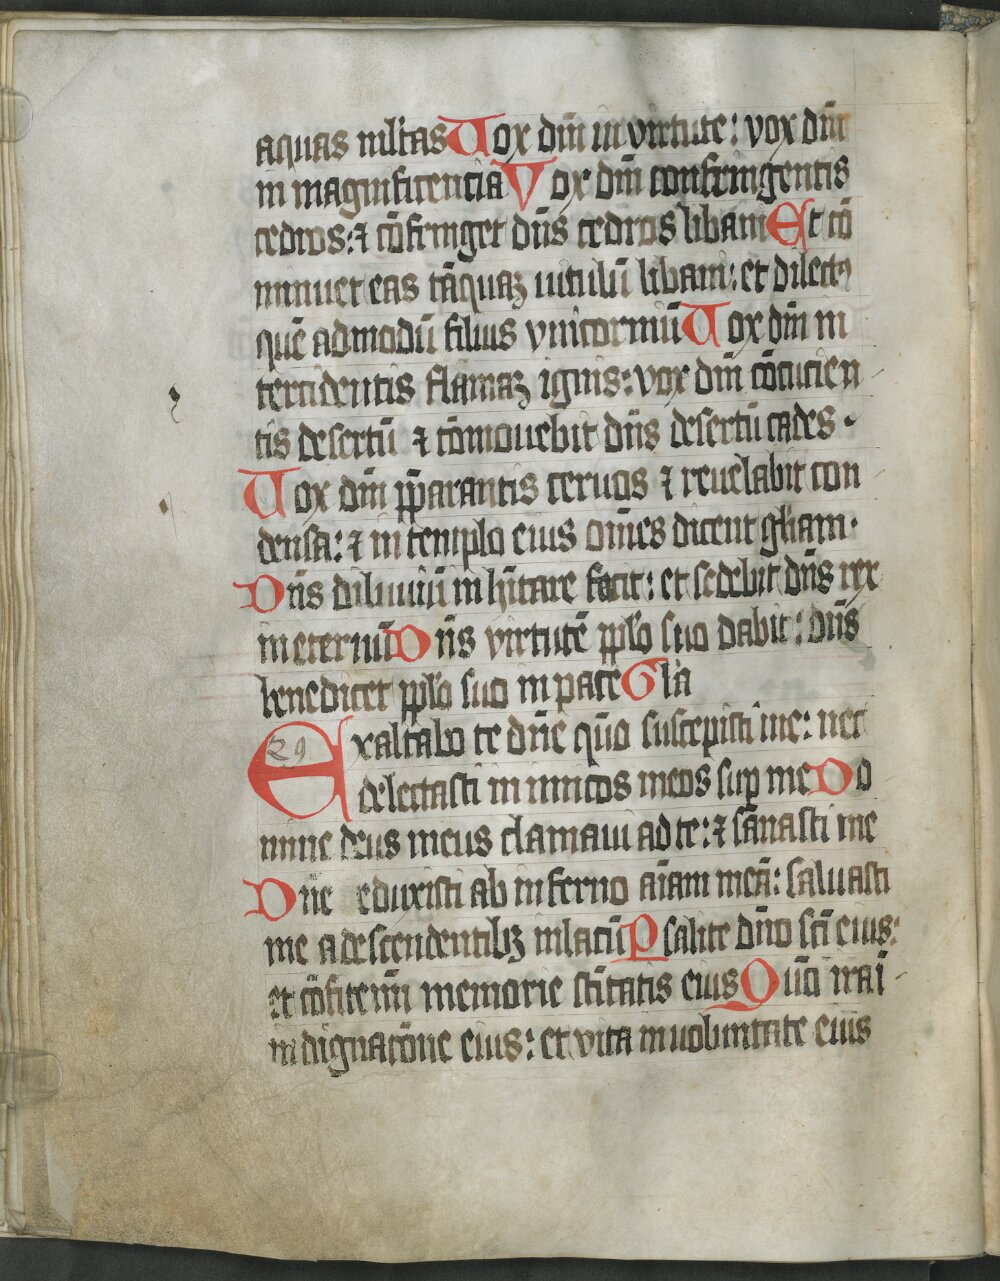 aquas ml̃tas Uox dm̃ in virtute: vox dm̃
in magnificencia Vox dm̃ confringentis
cedros: ⁊ cõfringet dñs cedros libani Et cõ
minuet eas tãquaꝫ uitulũ libani: et dilect9
quẽ admodũ filius vnicorniũ Uox dm̃ in
tercidentis flamaꝫ ignis: vox dm̃ cõcucien
tis desertũ ⁊ cõmouebit dñs desertũ cades
Uox dm̃ p̃parantis ceruos ⁊ reuelabit con
densa: ⁊ in templo eius om̃es dicent gl̃iam
Dñs diluuiũ inh̃itare facit: et sedebit dñs rex
in eternũ Dñs virtutẽ ppl̃o suo dabit: dñs
benedicet ppl̃o suo in pace Gl̃a
29
Exaltabo te dñe qũo suscepisti me: nec
delectasti inimicos meos suꝑ me Do
mine deus meus clamaui ad te: ⁊ sanasti me
Dñe eduxisti ab inferno ãiam meã: saluasti
me a descendentibꝫ in lacũ Psalite dño sc̃i eius:
et cõfitemĩ memorie sc̃itatis eius Qũo ira ĩ
indignacõne eius: et vita in uoluntate eius